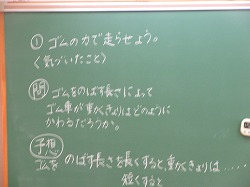 ① ゴムの力で走らせよう。
〈気づいたこと〉
問 ゴムをのばす長さによって
ゴム車が動くきょりはどのように
かわるだろうか。
予想
ゴムを のばす長さを長くすると、動くきょりは……
短くすると